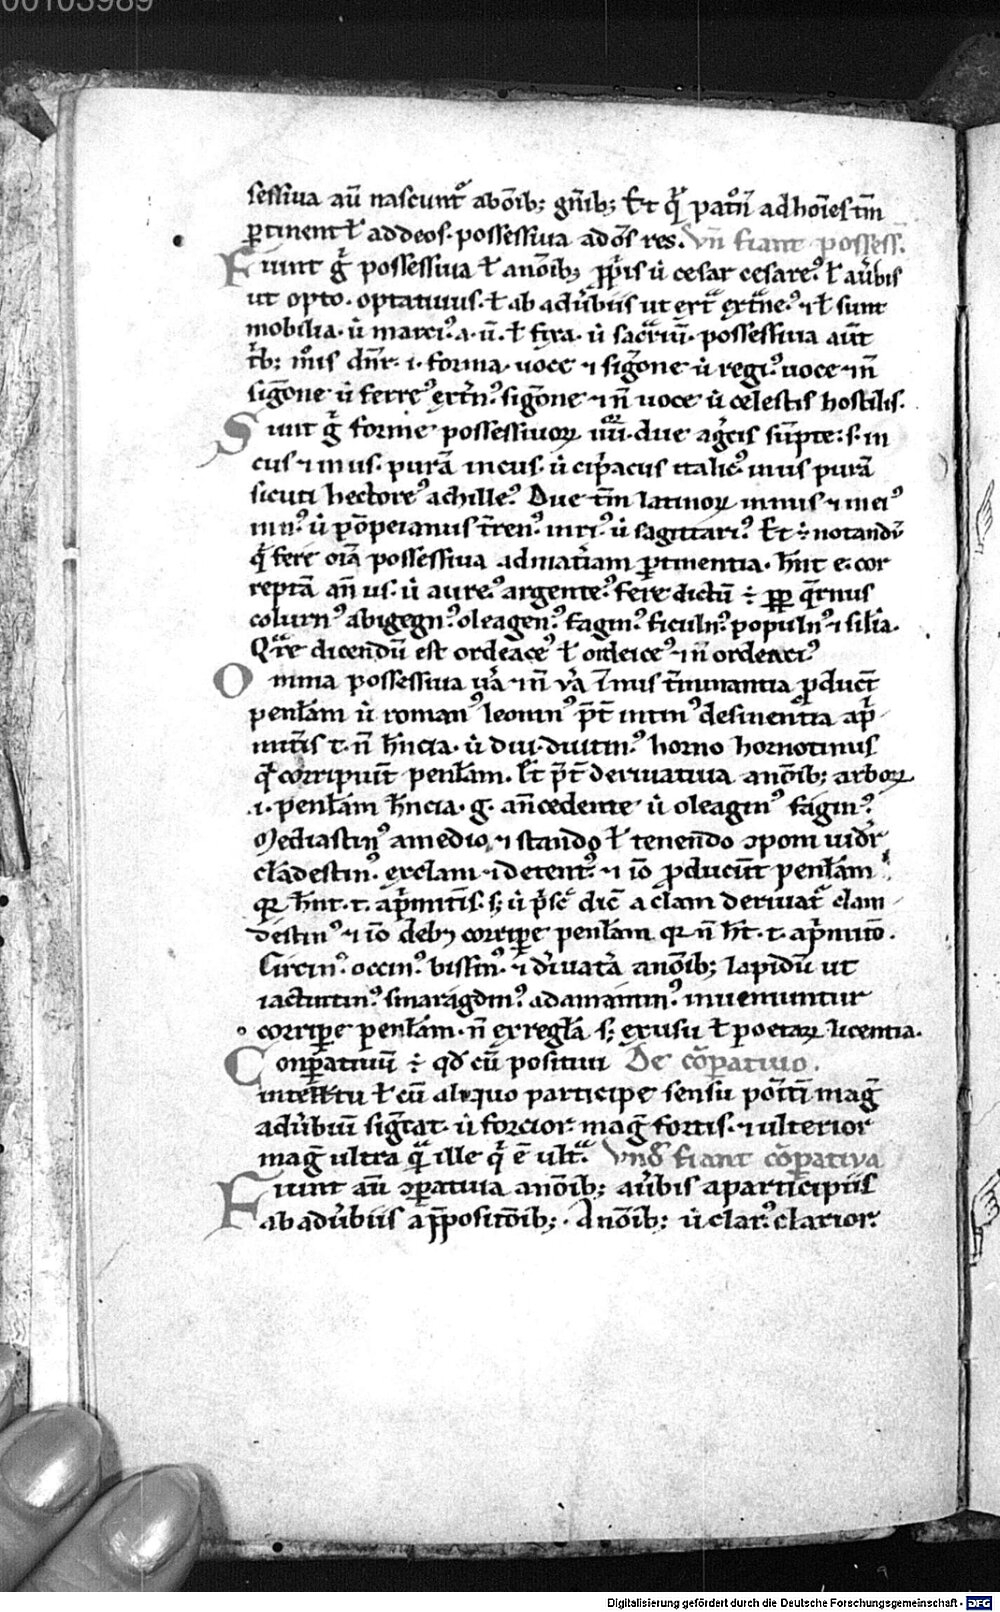 00103989
sessiua aū nascunt᷑ ab oīb; gn̄ib; Et qͥ patᵒn̄ ad hoīes tm̄
ꝑtinent ł ad deos. possessiua ad oēs res. Vn̄ fiant possess.
Fiunt gͥ possessiua ł a noīb; ꝓpͥis ů cesar cesareꝰ. ł a ův̄bis
ut opto. optatiuus. ł ab adůbiis ut extͣ extͣneꝰ. ⁊ ł sunt
mobilia. ů marciꝰ. a. ū. ł fixa. ů sacͣriū. possessiua aūt
tͥb; mͦis dn̄t. i. forma. uoce ⁊ sig͂one ů regiꝰ. uoce ⁊ n̄
sig͂one ů ferreꝰ extͥnꝰ. sig͂one ⁊ n̄ uoce ů celestis hostilis.
Sunt gͥ forme possessiuoꝝ due agͤcis sūpte: s. in
cus ⁊ inus. purā in cus. ů cipͥacus italicꝰ. inus purā
sicuti hectoreꝰ achilleꝰ. Due tm̄ latinoꝝ in nus ⁊ in eiꝰ
in nꝰ. ů pōpeianus t͛renꝰ. in riꝰ. ů sagittariꝰ. Et ÷ notandū
qͥ fere oīa possessiua ad mat͛iam ꝑtinentia. hn̄t e. cor
reptā an̄ us. ů aureꝰ. argenteꝰ. fere dictū ÷ ꝓꝑ qͣrnus
colurnꝰ abigegnꝰ. oleagenꝰ. faginꝰ. ficulnꝰ. populnꝰ ⁊ silia.
Qͣre dicendū est ordeaceꝰ ł ordeiceꝰ ⁊ n̄ ordeaciꝰ
Omnia possessiua terminantia ꝓducūt
penłam ů romanꝰ leoninꝰ p̄t in tinꝰ desinentia apͥ
mitiis t. n̄ hn̄cia. ů diu. diutinꝰ. horno hornotinus
qͥ corripiunt penłam. Et p̄t deriuatiua a noīb; arboꝝ
.i. penłam hn̄cia. g. an̄cedente ů oleaginꝰ faginꝰ.
Mediastinꝰ a medio, ⁊ stando ł tenendo ↄponi uidet᷑
clādestinꝰ. ex clam ⁊ detentꝰ. ⁊ iō ꝓducunt penłam
qꝛ hn̄t. t. apͥmitiis. s; ů pͥscꝰ dic̄ a clam deriuat᷑ clam
destinꝰ ⁊ iō deb; corripe penłam qꝛ n̄ ht. t. apͥmitiō.
Circinꝰ. occinꝰ. bissinꝰ. ⁊ dͥiuata a noīb; lapidū ut
iacinctinꝰ. smaragdinꝰ. adamantinꝰ. inueniuntur
corripe penłam. n̄ ex regła s; ex usu ł poetaꝝ licentia.
Conꝑatiuū ÷ qđ cū positiui De cōꝑatiuo.
intełctu ł cū aliquo participe sensu poīti mag͂
adůbiū sig͂cat. ů forcior mag͂ fortis. ⁊ ulterior
mag͂ ultra qͣ ille qͥ ē ultͣ. Vnđ fiant cōꝑativa
Fiunt aū ↄꝑatiua a noīb; a ův̄bis a participiis
ab adůbiis a p̄positōib;. A noīb; ů clarꝰ. clarior.
Digitalisierung gefördert durch die Deutsche Forschungsgemeinschaft - DFG